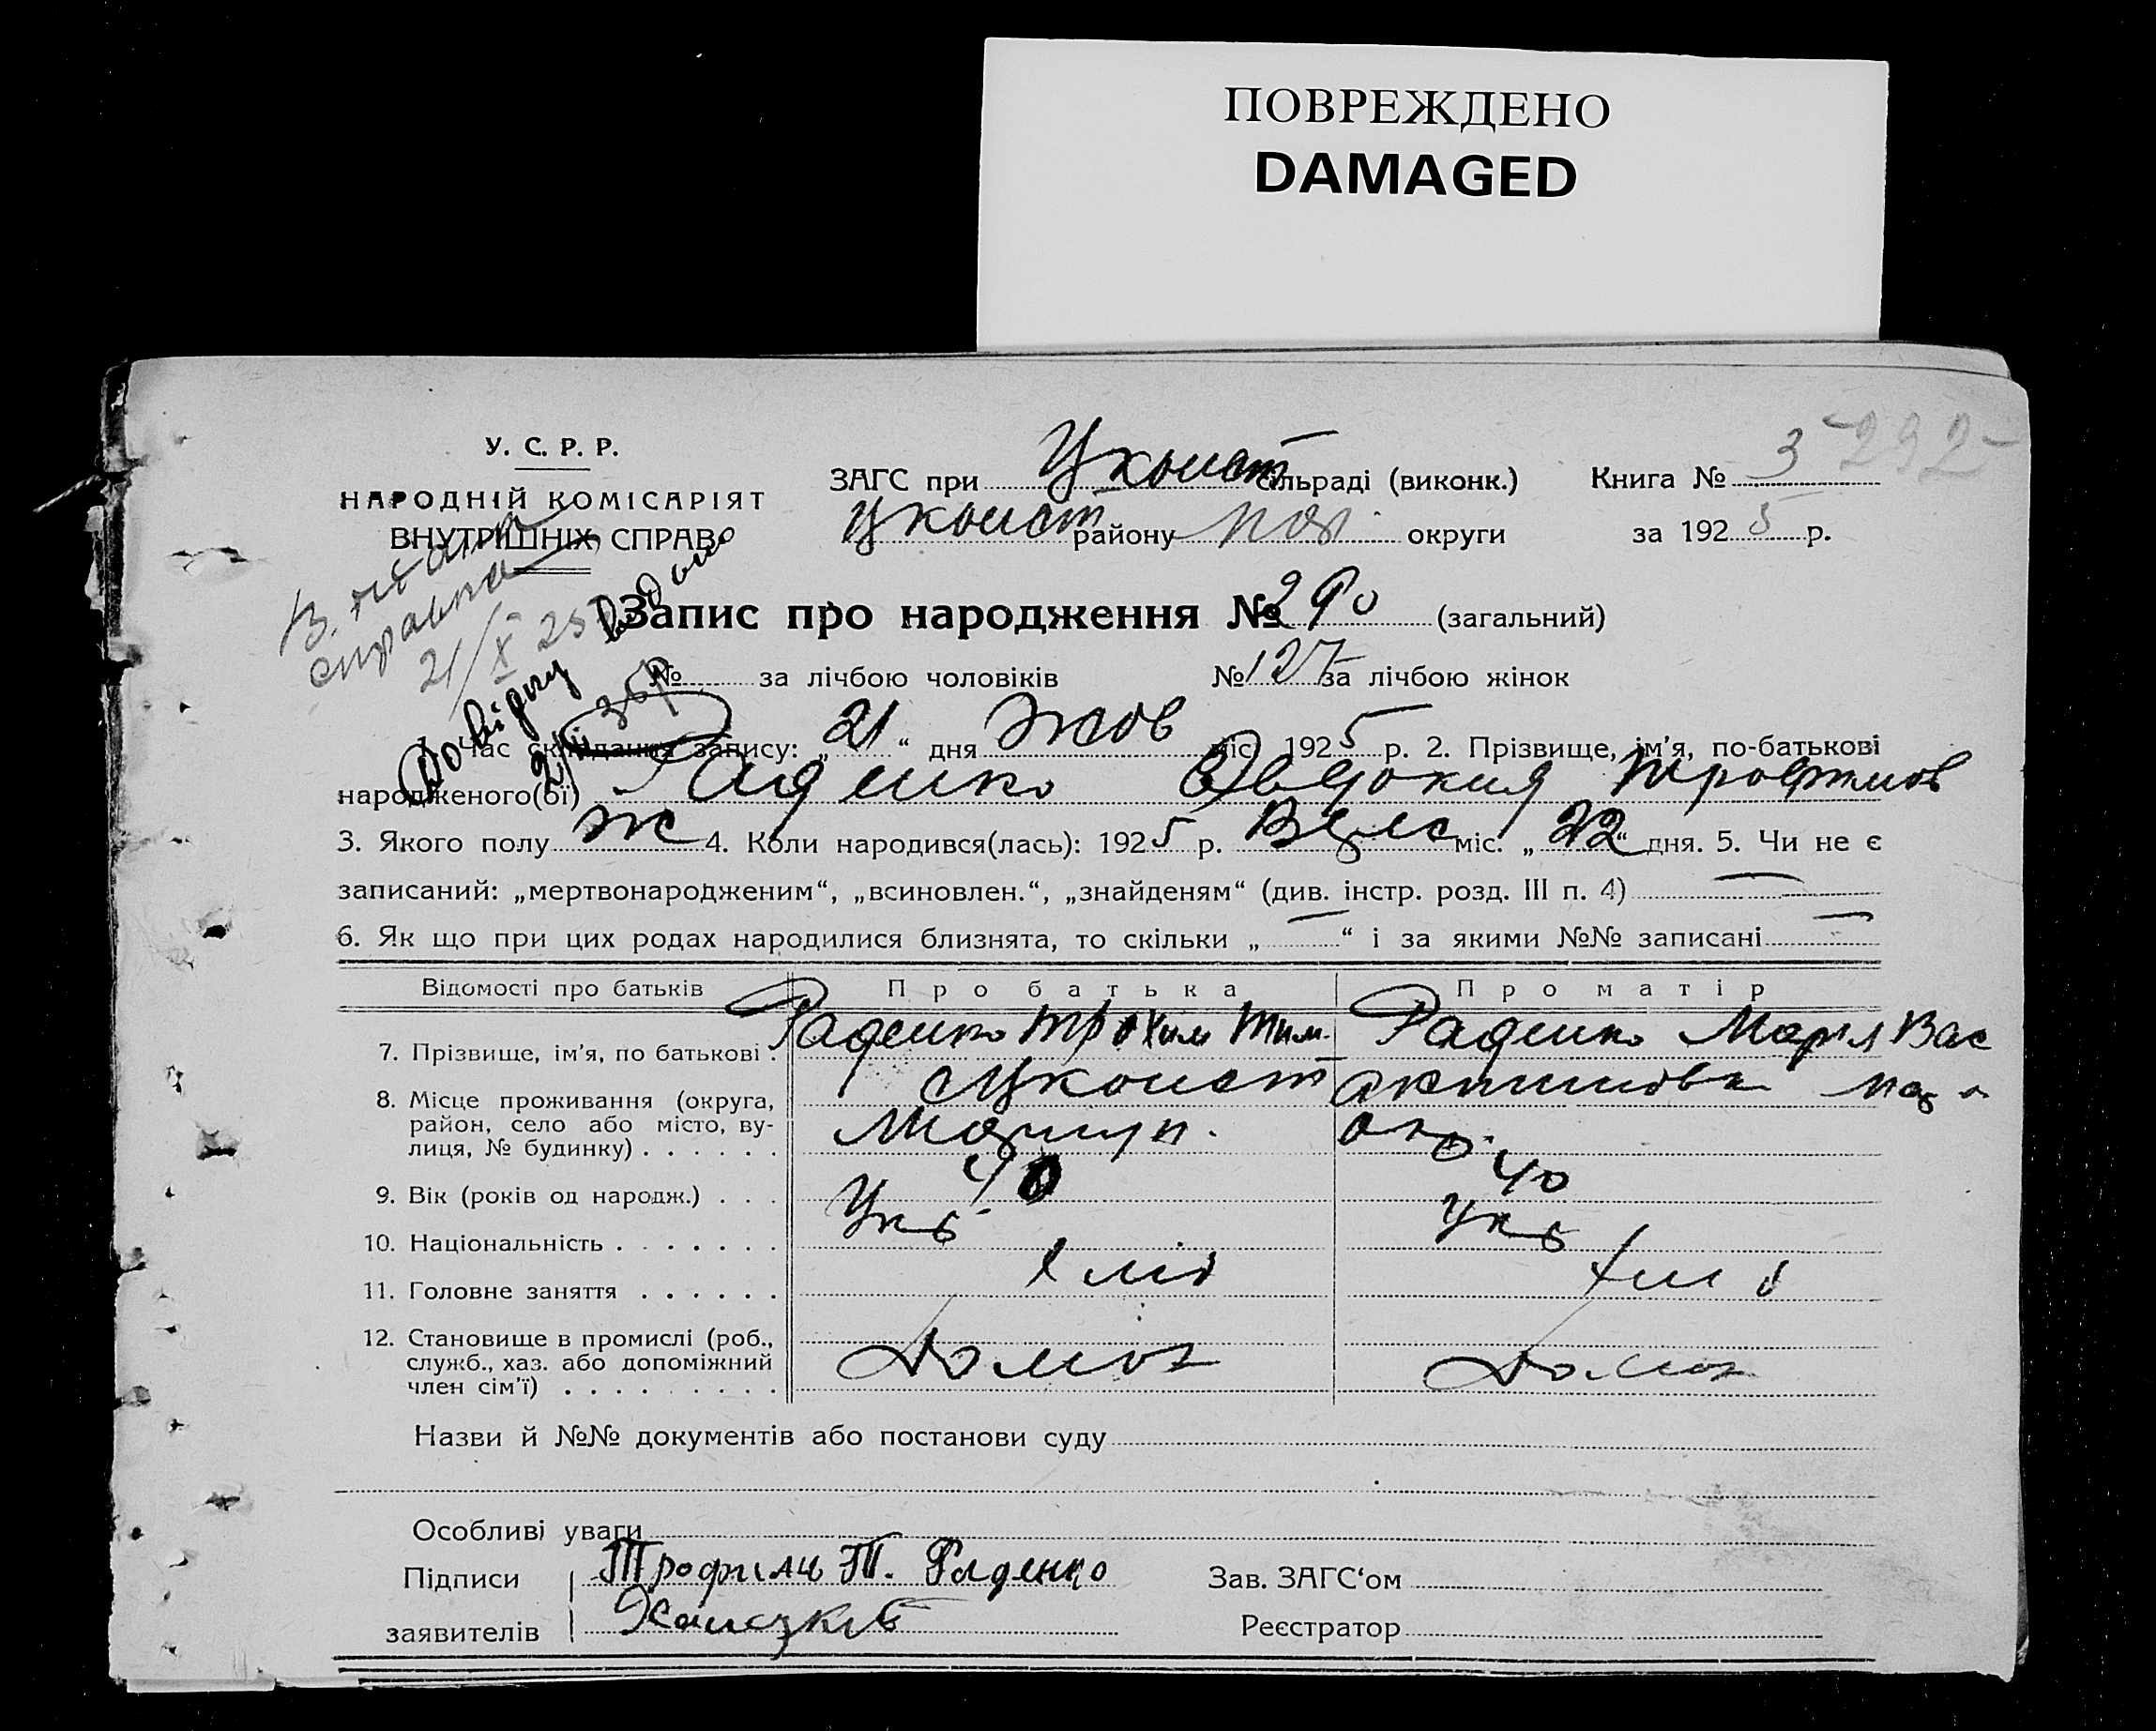 ПОВРЕЖДЕНО
DAMAGED
292
У. С. Р. Р.
НАРОДНІЙ КОМІСАРІЯТ
ВНУТРІШНІХ СПРАВ
ЗАГС при сільраді (виконк.) Книга № 3
району округи за 1925 р.
справка
21/X 25
Запис про народження № 290 (загальний)
№ за лічбою чоловіків № 127 за лічбою жінок
1. Час складання запису: „21“ дня Жов міс. 1925 р. 2. Прізвище, ім’я, по-батькові
народженого(ої) Раденко Евдокия
3. Якого полу Ж 4. Коли народився(лась): 1925 р. міс. „22“ дня. 5. Чи не є
записаний: „мертвонародженим“, „всиновлен.“, „знайденям“ (див. інстр. розд. III п. 4) —
6. Як що при цих родах народилися близнята, то скільки „—“ і за якими №№ записані —
Відомості про батьків Про батька Про матір
7. Прізвище, ім’я, по батькові . Раденко Трохим Тим. Раденко Мария Вас
8. Місце проживання (округа,
район, село або місто, ву-
лиця, № будинку) . . . . . .
9. Вік (років од народж.) . . . 40 40
10. Національність . . . . . . . Укр Укр
11. Головне заняття . . . . . . Хліб
12. Становище в промислі (роб.,
служб., хаз. або допоміжний
член сім’ї) . . . . . . . . .
Назви й №№ документів або постанови суду
Особливі уваги
Підписи Трофим Т. Раденко Зав. ЗАГС‘ом
заявителів Реєстратор